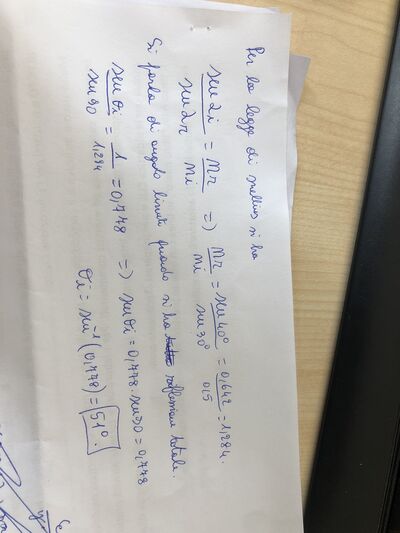 Per la legge di snellius si ha
sen 2i / sen 2r = nr / ni => nr / ni = sen 40° / sen 30° = 0,642 / 0,5 = 1,284.
Si parla di angolo limite quando si ha riflessione totale.
sen θi / sen 90 = 1 / 1,284 = 0,778 => sen θi = 0,778 · sen 90 = 0,778
θi = sen⁻¹ (0,778) = 51°.